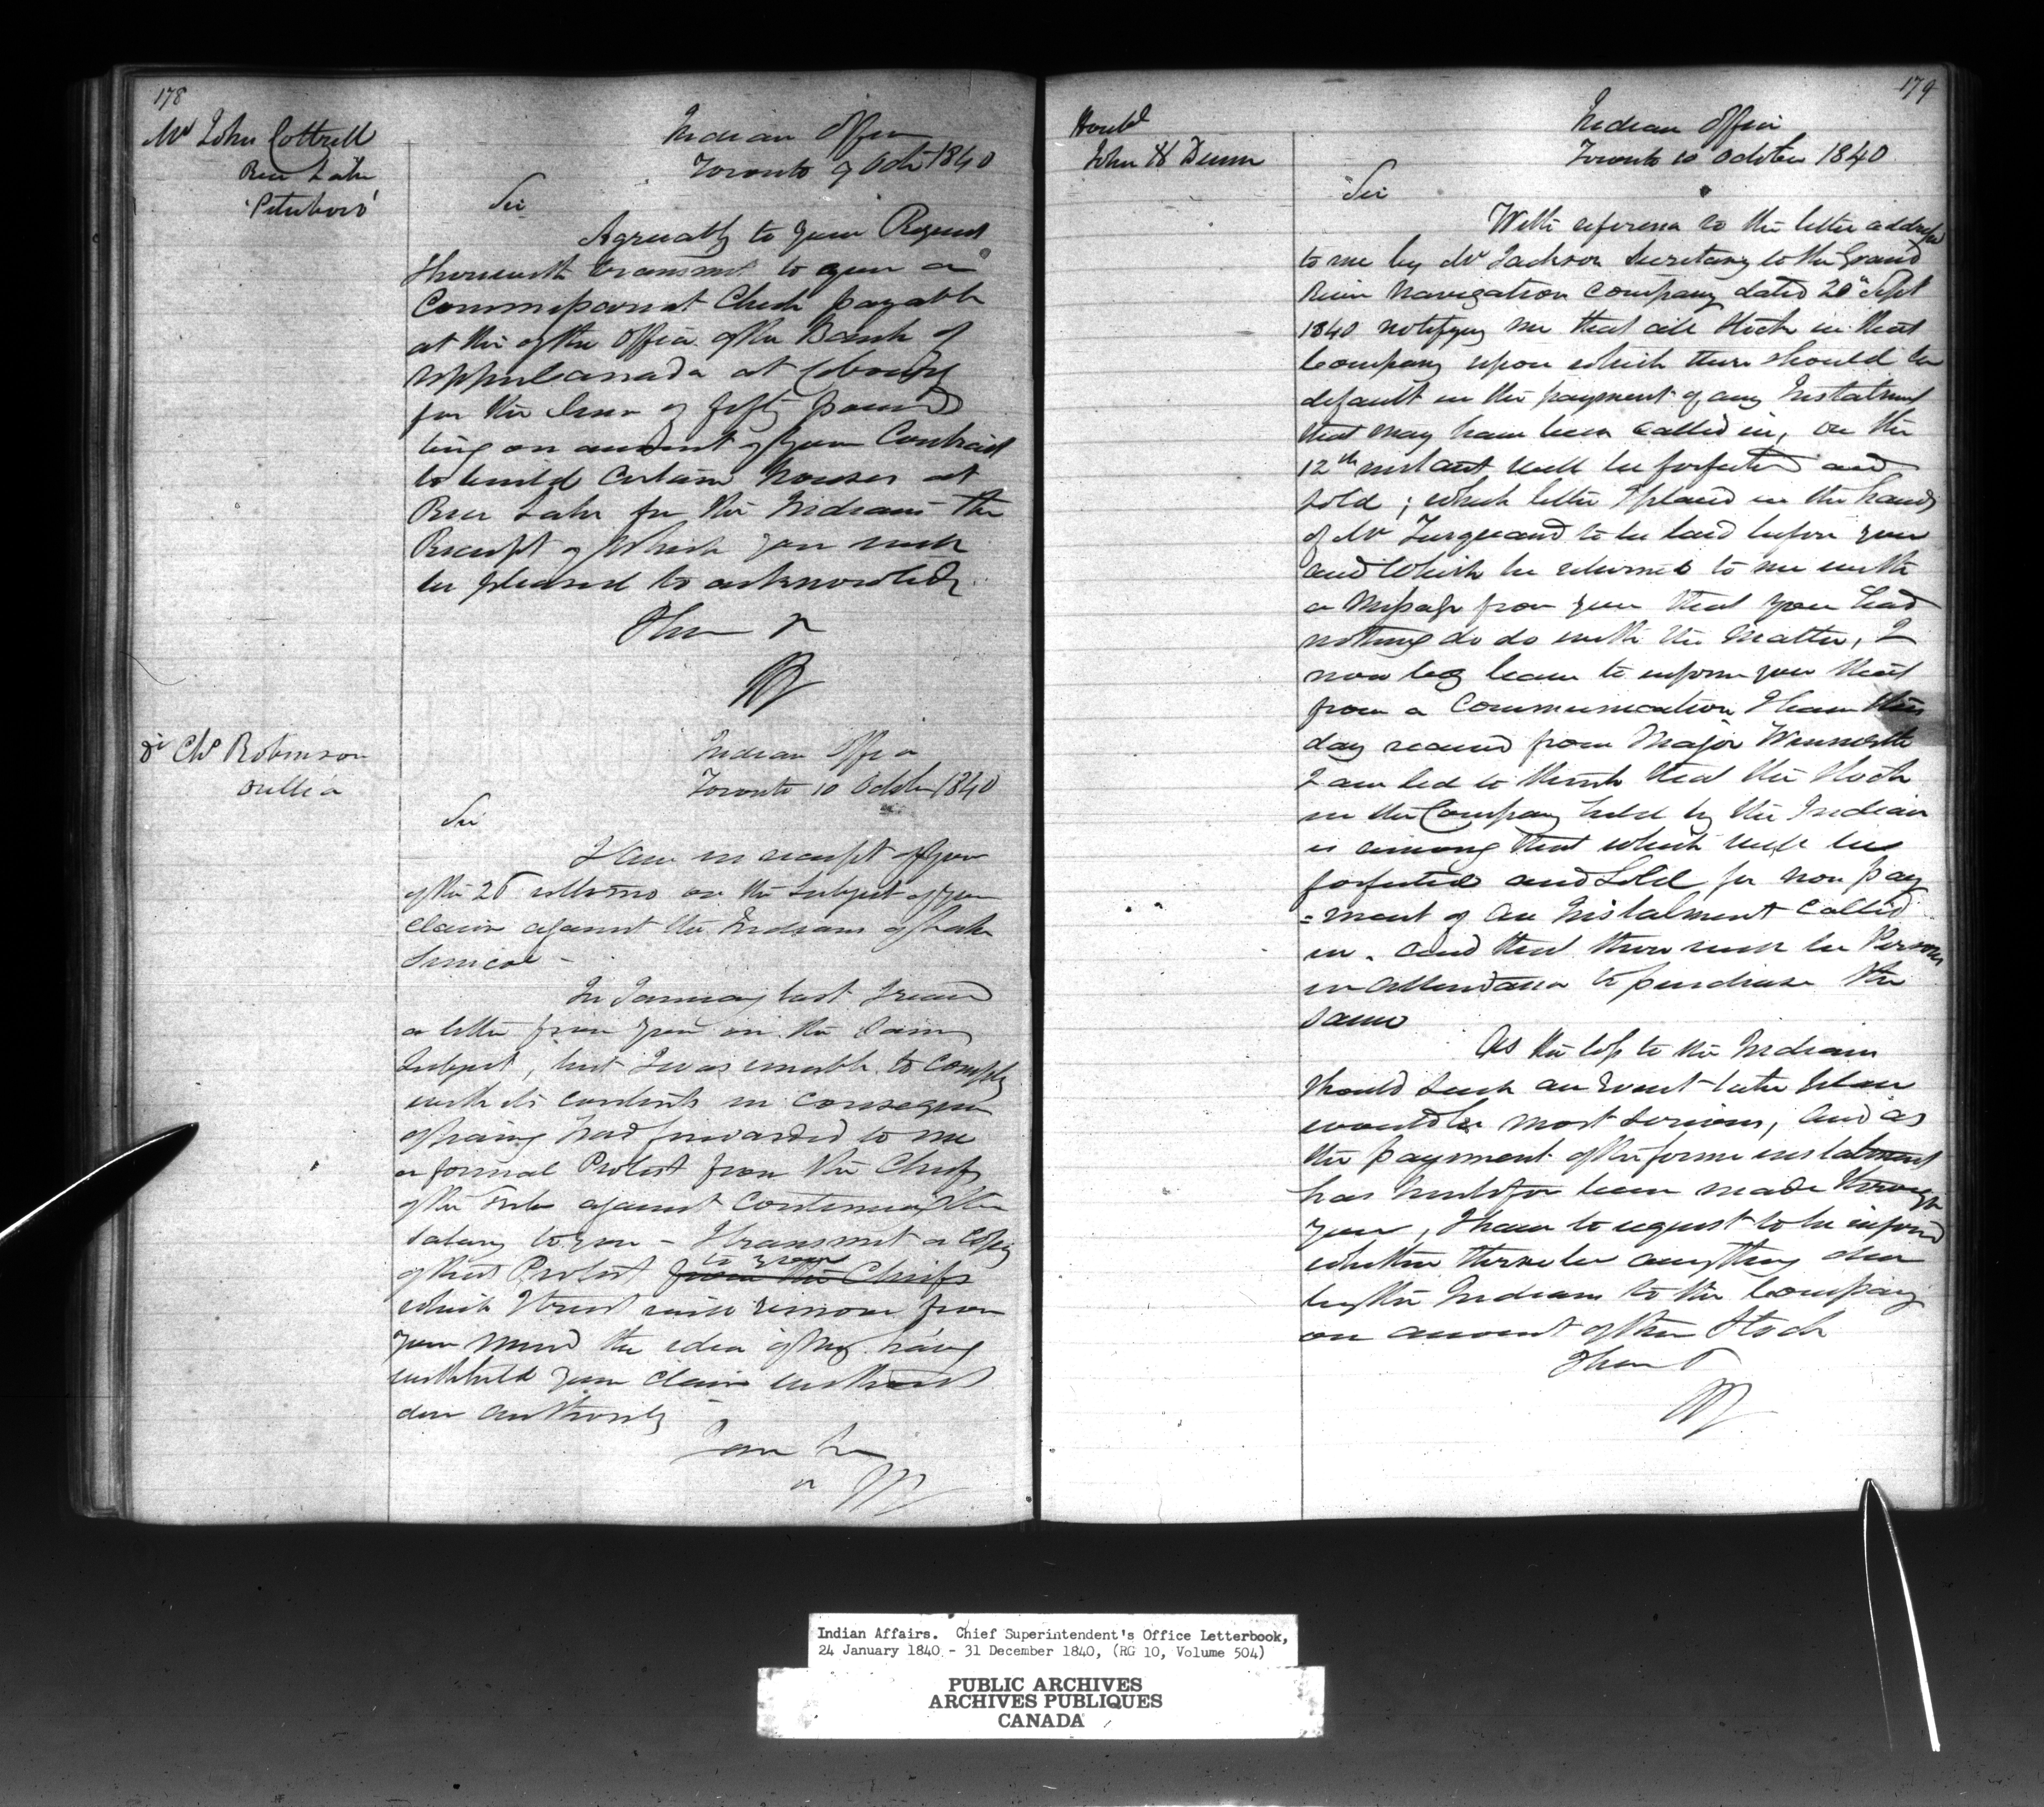 178
Mr John Cottrell
Rice Lake
Peterboro'
Indian Office
Toronto 9 Octr 1840
Sir
Agreeably to your Request
I herewith transmit to you a
Commissariat Check payable
at the of the Office of the Bank of
Upper Canada at Cobourg
for the Sum of fifty pounds
being on account of your Contract
to build certain houses at
Rice Lake for the Indians the
Receipt of which you will
be pleased to acknowledge
I have
Chs Robinson
Orillia
Indian Office
Toronto 10 October 1840
Sir
I am in receipt of your
of the 26 ultimo on the Subject of your
claim against the Indians of Lake
Simcoe -
In January last I received
a letter from you on the same
Subject, but I was unable to comply
with its contents in consequence
of having had forwarded to me
a formal Protest from the Chiefs
of the Tribe against continuing the
salary to you - I transmit a Copy
to you
of that Protest from the Chiefs
which I trust will remove from
your mind the idea of my having
withheld your claim without
due authority
I am
179
Honble
John H Dunn
Indian Office
Toronto 10 October 1840
Sir
With reference to the letter addressed
to me by Mr Jackson Secretary to the Grand
River Navigation Company dated 28th Sept
1840 notifying me that all Stock in that
Company upon which there should be
default in the payment of any Instalment
that may have been called in, on the
12th instant will be forfeited and
sold; which letter I placed in the hands
of Mr Turquand to be laid before you
and which he returned to me with
a Message from you that you had
nothing do do with the matter, I
now beg leave to inform you that
from a Communication I have this
day received from Major Winniett
I am led to think that the Stock
in the Company held by the Indian
is among that which will be
forfeited and Sold for non pay
=ment of an Instalment called
in. and that there will be Persons
in attendance to purchase the
same
As the loss to the Indians
should such an event take place
would be most serious, and as
the payment of the former instalment
has heretofore been made through
you, I have to request to be informed
whether there be anything due
by the Indians to the Company
on account of their Stock
I have
Indian Affairs. Chief Superintendent's Office Letterbook,
24 January 1840 - 31 December 1840, (RG 10, Volume 504)
PUBLIC ARCHIVES
ARCHIVES PUBLIQUES
CANADA